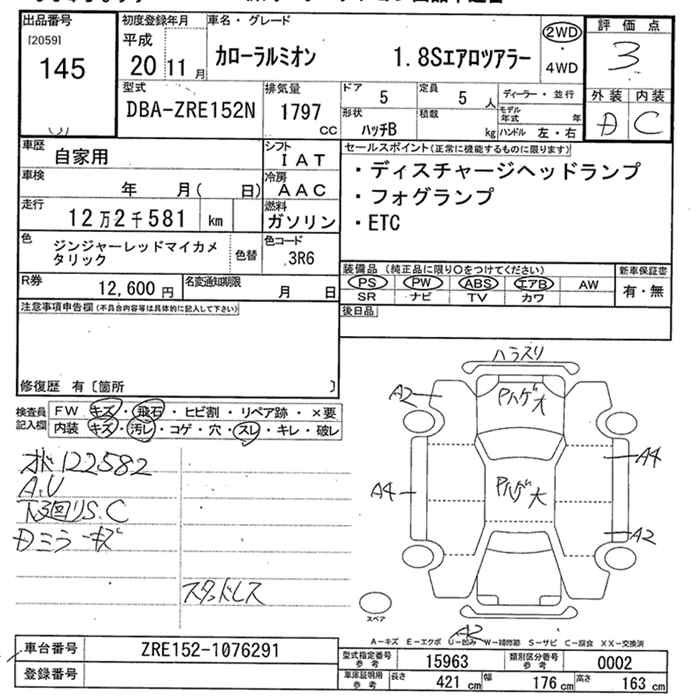 出品番号 初度登録年月 車名・グレード 2WD 評価点
[2059] 平成
145 20 11月 カローラルミオン 1.8Sエアロツアラー ・4WD 3
型式 排気量 ドア 5 定員 5人 ディーラー・並行 外装 内装
DBA-ZRE152N 1797cc 形状 ハッチB 積載 kg モデル年式 年 D C
ハンドル 左・右
車歴 自家用 シフト IAT セールスポイント(正常に機能するものに限ります)
車検 年 月( 日) 冷房 AAC ・ディスチャージヘッドランプ
走行 12万2千581 km 燃料 ガソリン ・フォグランプ
・ETC
色 ジンジャーレッドマイカメタリック 色替 色コード 3R6
装備品(純正品に限り○をつけてください) 新車保証書
R券 12,600円 名変通知期限 月 日 PS PW ABS エアB AW 有・無
SR ナビ TV カワ
注意事項申告欄(不具合内容等は具体的に記入して下さい) 後日品
修復歴 有〔箇所 〕
検査員記入欄 FW キズ・飛石・ヒビ割・リペア跡・×要
内装 キズ・汚レ・コゲ・穴・スレ・キレ・破レ
ハラスリ
A2 Pハゲ大
オド122582
A.U
下回りS.C
Dミラーキズ
スタッドレス
A4 Pハゲ大 A4
A2
スペア
A2
A-キズ E-エクボ U-凹み W-補修跡 S-サビ C-腐食 XX-交換済
車台番号 ZRE152-1076291 型式指定番号 参考 15963 類別区分番号 参考 0002
登録番号 車庫証明用 参考 長さ 421cm 幅 176cm 高さ 163cm